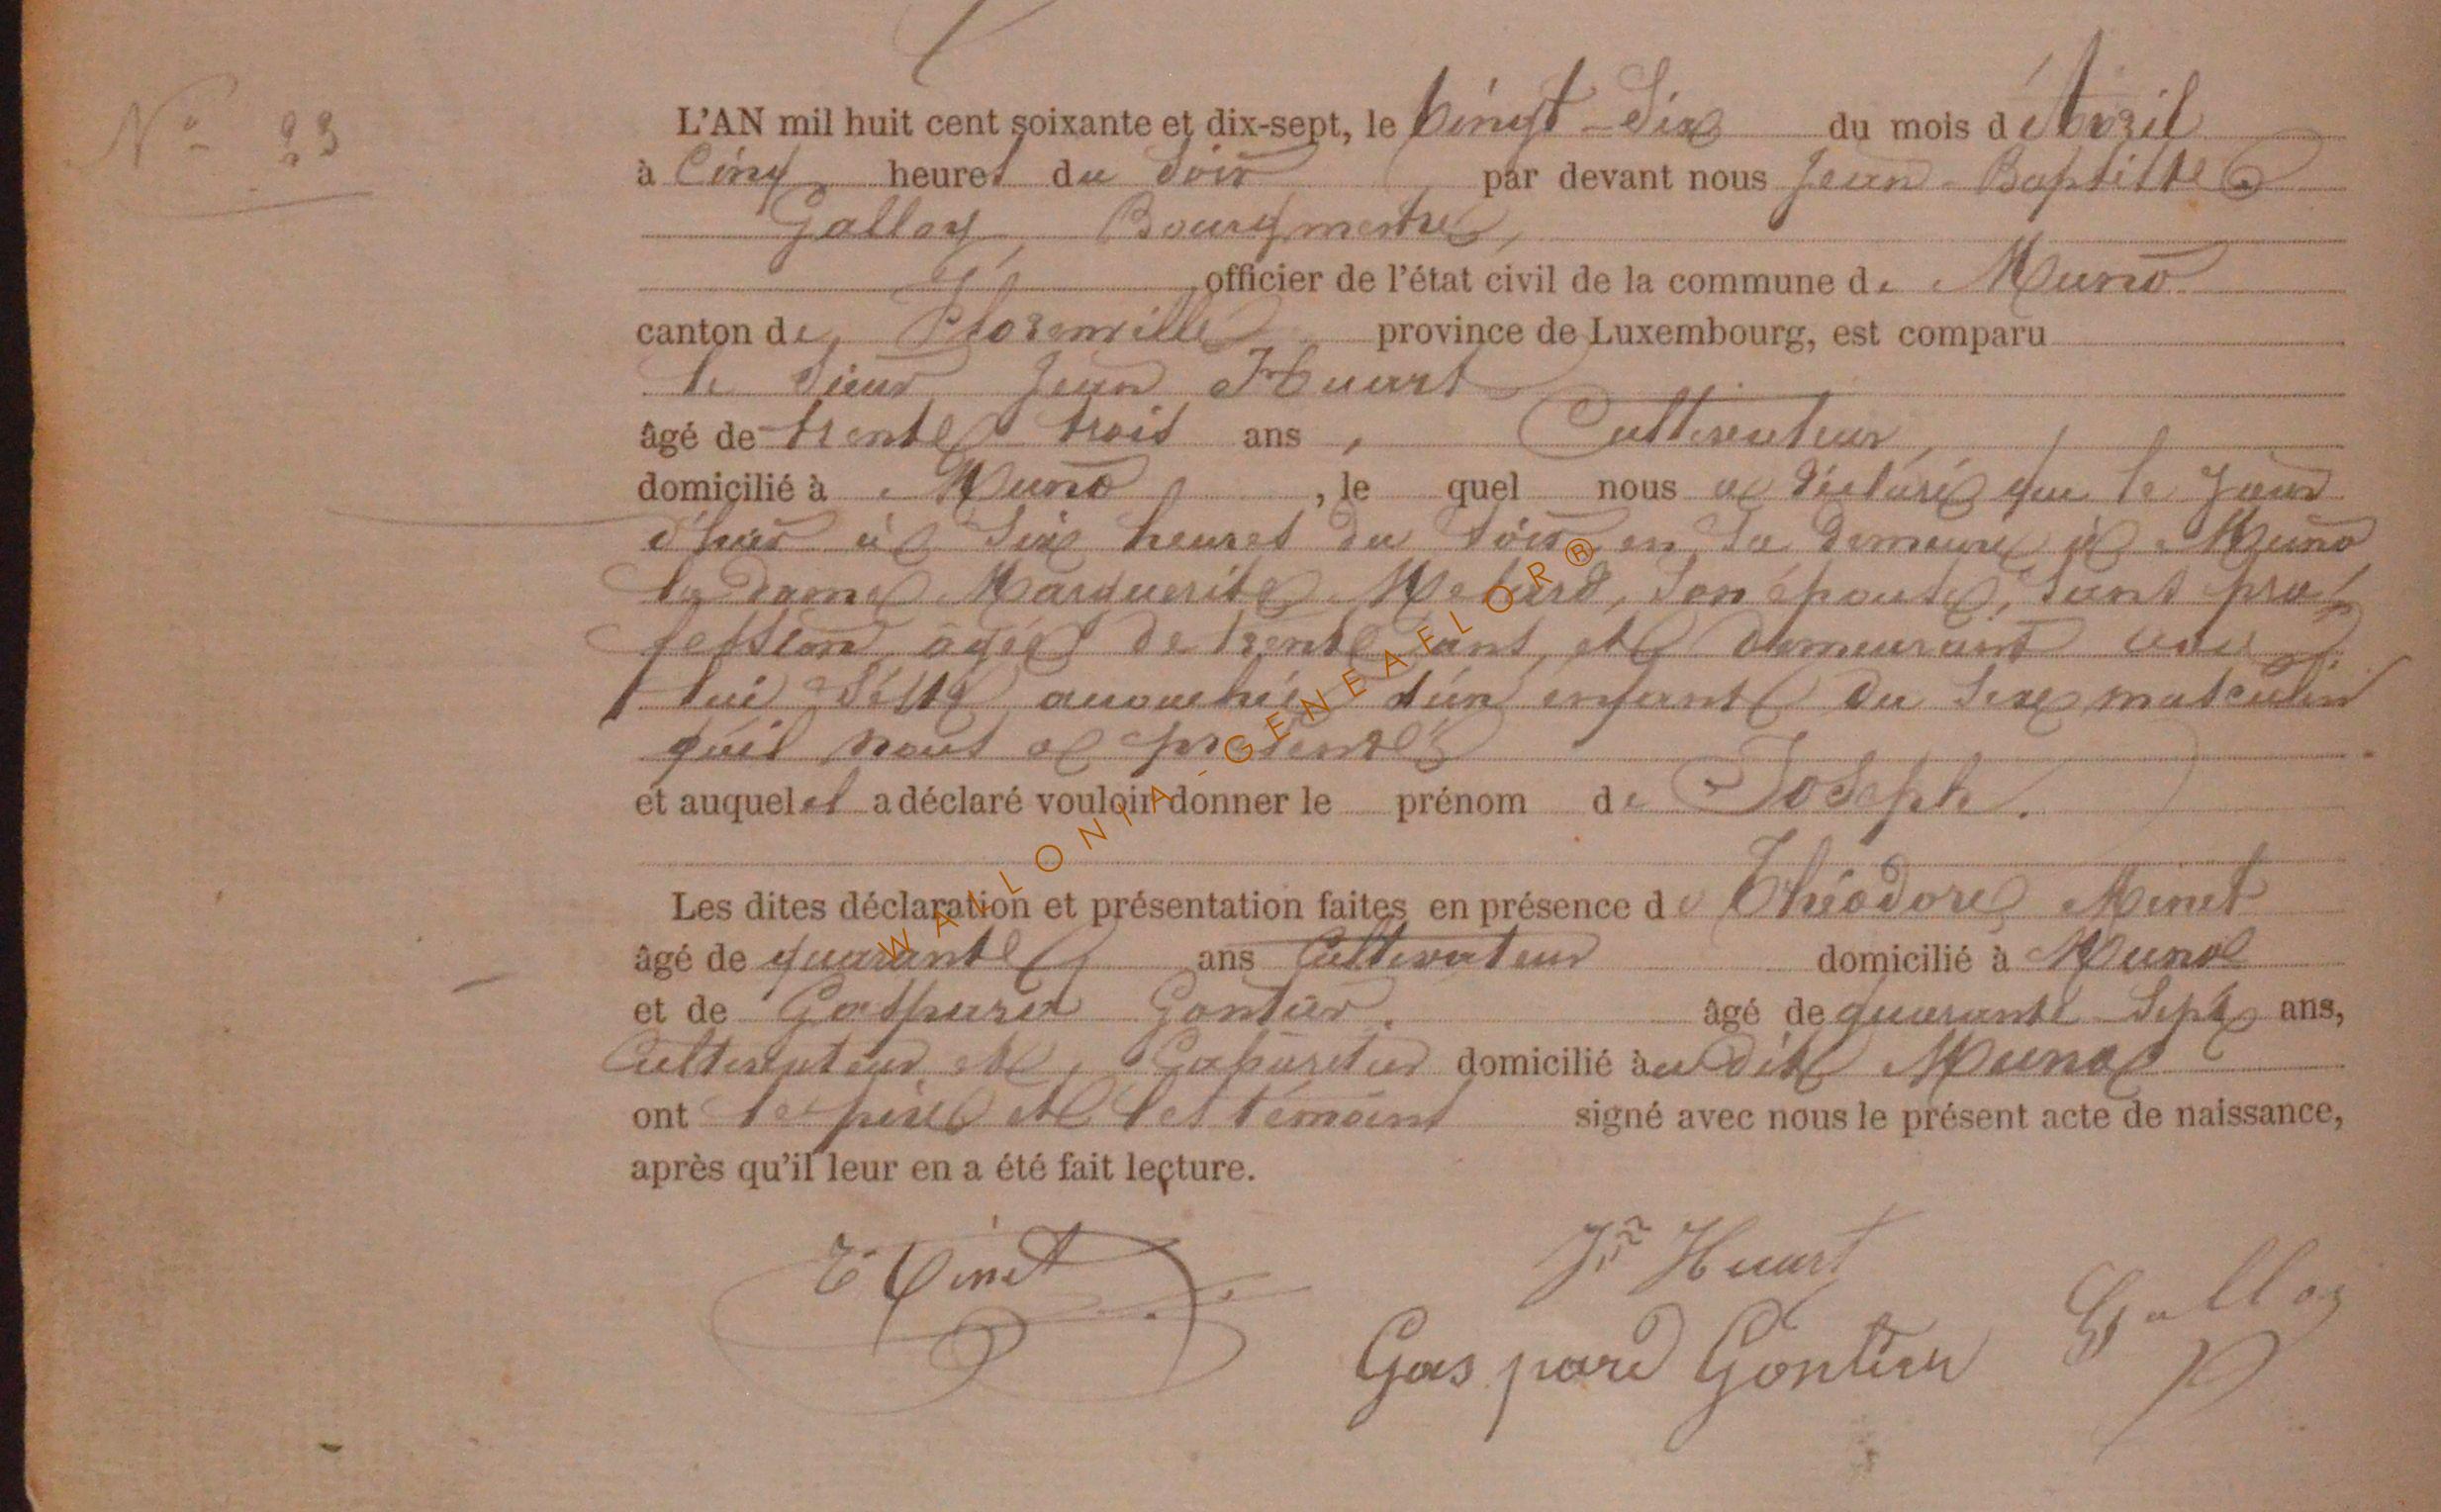 N° 23
L'AN mil huit cent soixante et dix-sept, le vingt-Six du mois d'Avril
à Cinq heures du Soir par devant nous Jean-Baptiste
Galloy, Bourgmestre,
officier de l'état civil de la commune de Muno
canton de Florenville province de Luxembourg, est comparu
le Sieur Jean Huart
âgé de trente trois ans, Cultivateur,
domicilié à Muno, le quel nous a déclaré que le Jour
d'hier à Six heures du Soir en Sa demeure à Muno
la dame Marguerite, Son épouse, Sans pro-
fession, âgée de trente ans, et demeurant avec
lui S'est accouchée d'un enfant du Sexe masculin
qu'il nous a présenté
et auquel il a déclaré vouloir donner le prénom de Joseph.
Les dites déclaration et présentation faites en présence de Théodore Minet
âgé de quarante ans Cultivateur domicilié à Muno
et de Gaspard Gontier. âgé de quarante Sept ans,
Cultivateur et Cabaretier domicilié au dit Muno
ont le père et les témoins signé avec nous le présent acte de naissance,
après qu'il leur en a été fait lecture.
T Minet
Jn Huart
Galloy
Gaspard Gontier
WALLONIA-GENEAFLOR®